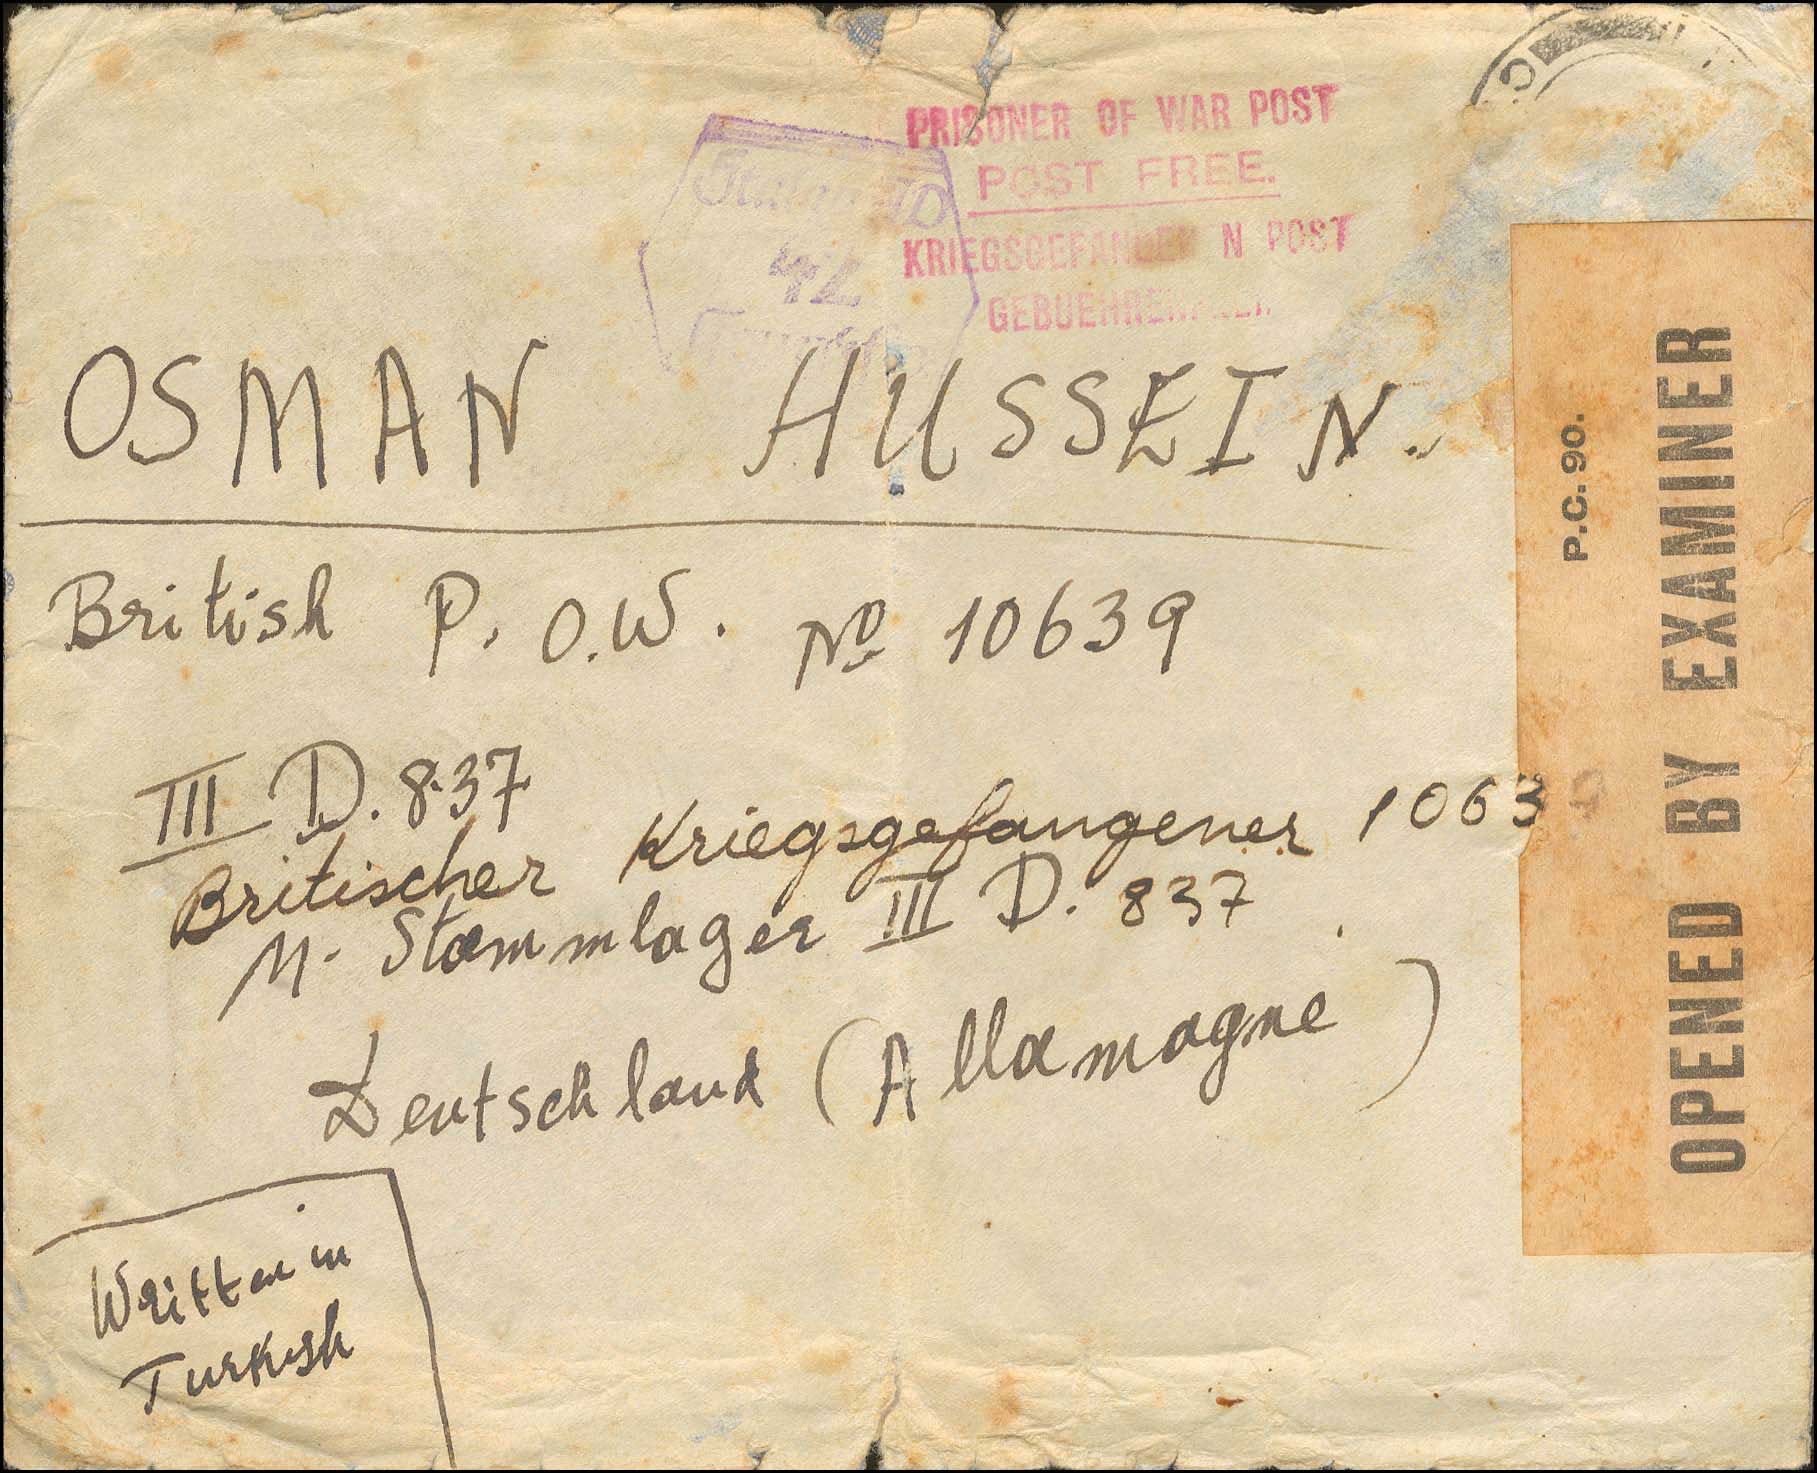 PRISONER OF WAR POST
POST FREE.
KRIEGSGEFANGEN N POST
42
OSMAN HUSSEIN.
British P. O.W. No 10639
III D. 837
Britischer Kriegsgefangener 1063
M. Stammlager III D. 837
Deutschland (Allamagne)
Written in
Turkish
P.C. 90.
OPENED BY EXAMINER